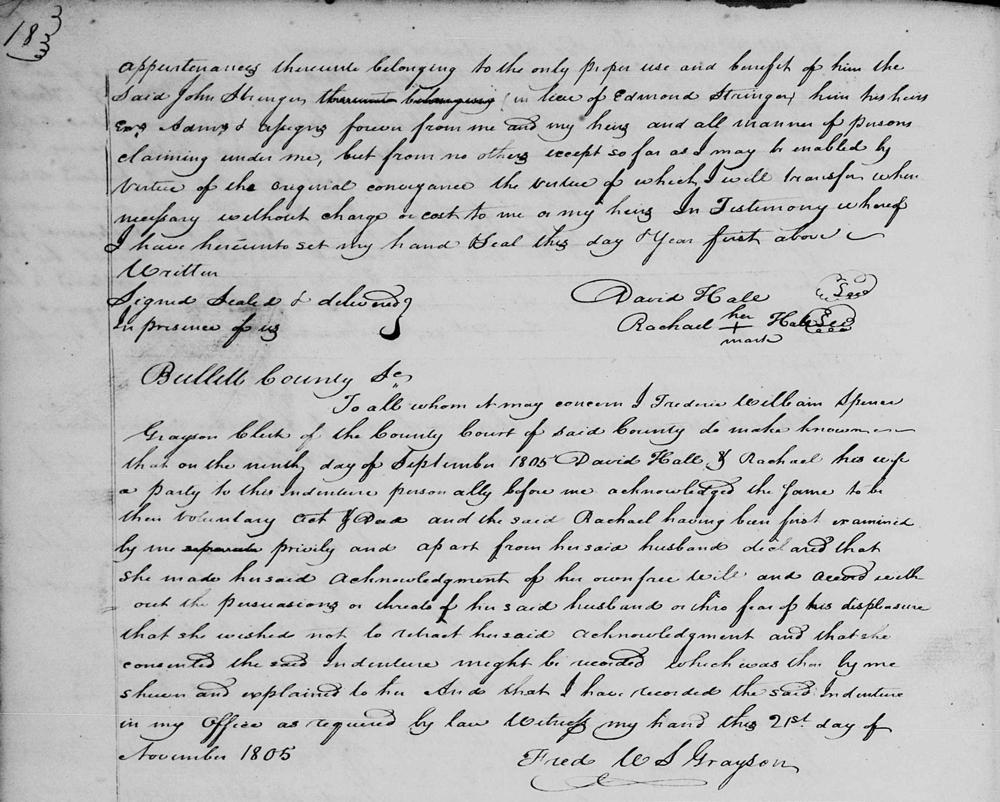 18
appurtenances thereunto belonging to the only proper use and benefit of him the
Said John Stringer thereunto belonging (in lieu of Edmond Stringer) him his heirs
Exrs Admrs & assigns forever from me and my heirs and all manner of persons
claiming under me, but from no others except so far as I may be enabled by
Virtue of the original conveyance the virtue of which I will transfer when
necessary without charge or cost to me or my heirs In Testimony whereof
I have hereunto set my hand & Seal this day & Year first above
Written
Signed Sealed & delivered
In presence of us
David Hall Seal
Rachael her + mark Hall Seal
Bullitt County Sc
To all whom it may concern I Frederic William Spencer
Grayson Clerk of the County Court of said County do make known
that on the ninth day of September 1805 David Hall & Rachael his wife
a party to this Indenture personally before me acknowledged the Same to be
their voluntary act & Deed and the said Rachael having been first examined
by me separate privily and apart from her said husband declared that
she made her said acknowledgment of her own free Will and accord with
out the persuasions or threats of her said husband or thro fear of his displeasure
that she wished not to retract her said acknowledgment and that she
consented the said Indenture might be recorded which was then by me
shewn and explained to her And that I have recorded the said Indenture
in my Office as required by law Witness my hand this 21st day of
November 1805
Fred W S Grayson